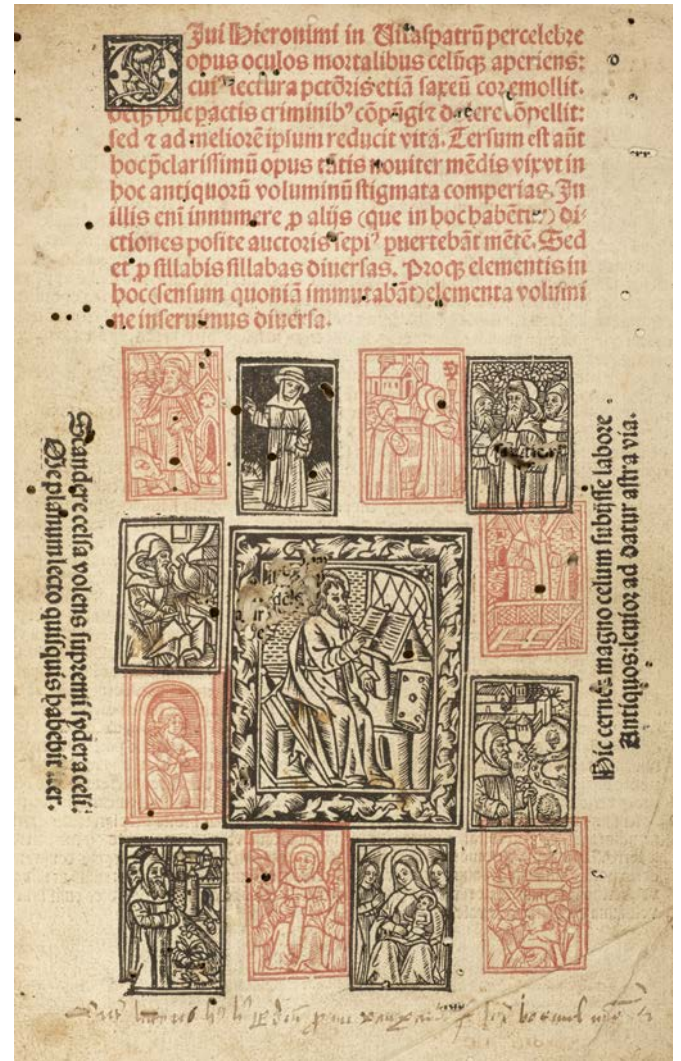 Diui Hieronimi in Vitaspatrū percelebre
opus oculos mortalibus celūq̃ aperiens:
cui⁹ lectura pctōris etiā saxeū cor emollit.
pactis criminib⁹ cōpūgi ⁊ dolere cōpellit:
sed ⁊ ad meliorē ipsum reducit vitā. Tersum est aūt
hoc p̄clarissimū opus tātis nouiter mēdis vix vt in
hoc antiquorū voluminū stigmata comperias. In
illis enī innumere ꝓ alijs (que in hoc habētur) di-
ctiones posite auctoris sepi⁹ puertebāt mētē. Sed
et ꝓ sillabis sillabas diuersas. Proq̃ elementis in
hoc (sensum quoniā immutabāt) elementa volumi
ne inseruimus diuersa.
Scandere celsa volens supremi sydera celi:
Me planum lecto quisquis habebit iter.
Hic cernes magno celum subijsse labore
Antiquos: leuior ad datur astra via.